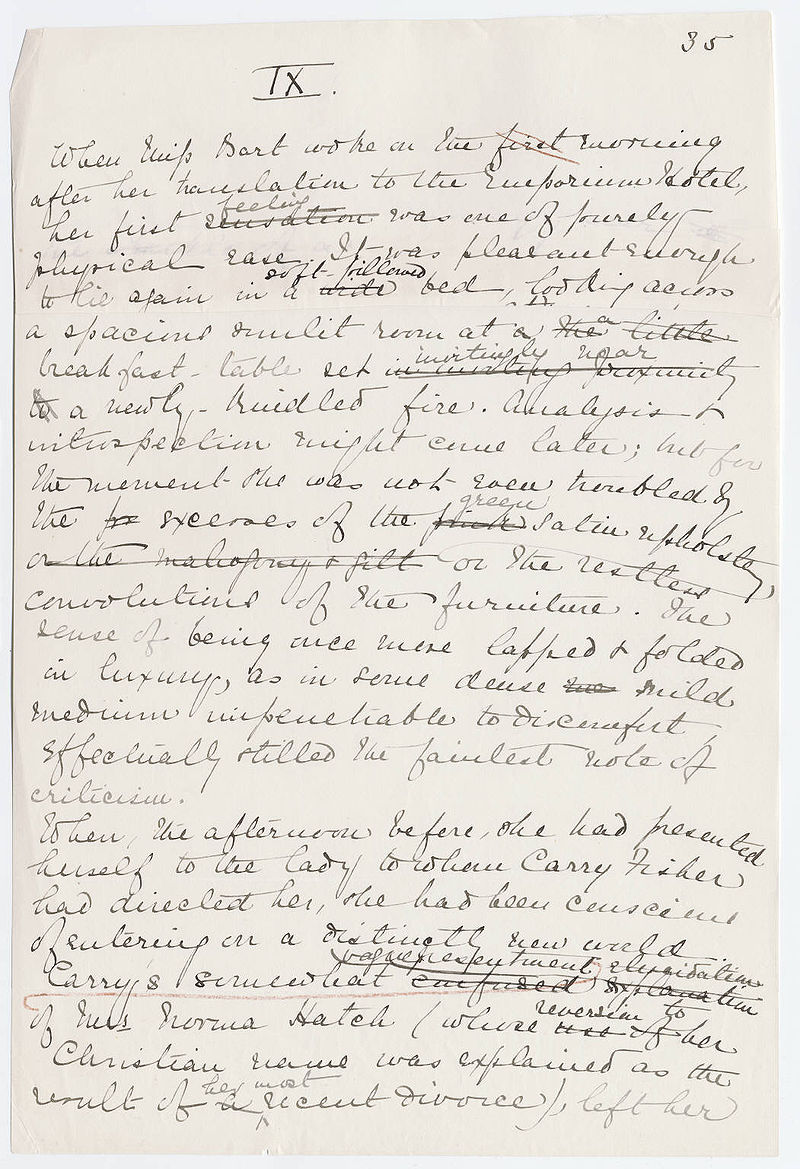 35
IX.
When Miss Bart woke on the first morning
after her translation to the Emporium Hotel,
feeling
her first sensation was one of purely
physical ease. It was pleasant enough
soft-pillowed
to lie again in a wide bed, looking across
a
a spacious sunlit room at a the little
invitingly near
breakfast-table set in inviting proximity
to a newly-kindled fire. Analysis &
introspection might come later; but for
the moment she was not even troubled by
green
the excesses of the pink satin upholstery
or the mahogany & gilt or the restless
convolutions of the furniture. The
sense of being once more lapped & folded
in luxury, as in some dense mild
medium impenetrable to discomfort,
effectually stilled the faintest note of
criticism.
When, the afternoon before, she had presented
herself to the lady to whom Carry Fisher
had directed her, she had been conscious
of entering on a distinctly new world.
vague presentment elucidation
Carry's somewhat confused explanation
reversion to
of Mrs Norma Hatch (whose use of her
Christian name was explained as the
her most
result of a recent divorce), left her